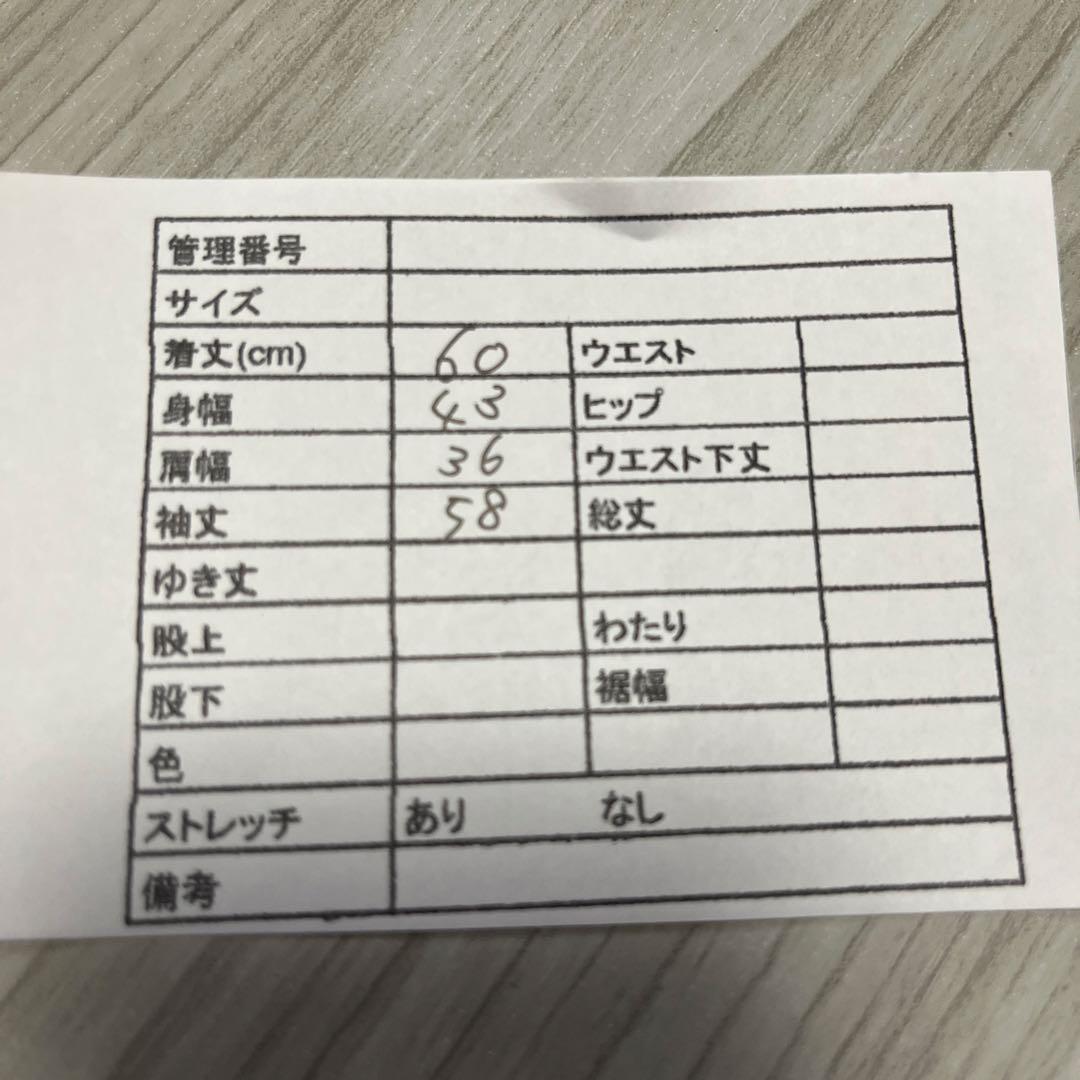 管理番号
サイズ
着丈(cm) 60 ウエスト
身幅 43 ヒップ
肩幅 36 ウエスト下丈
袖丈 58 総丈
ゆき丈
股上 わたり
股下 裾幅
色
ストレッチ あり なし
備考